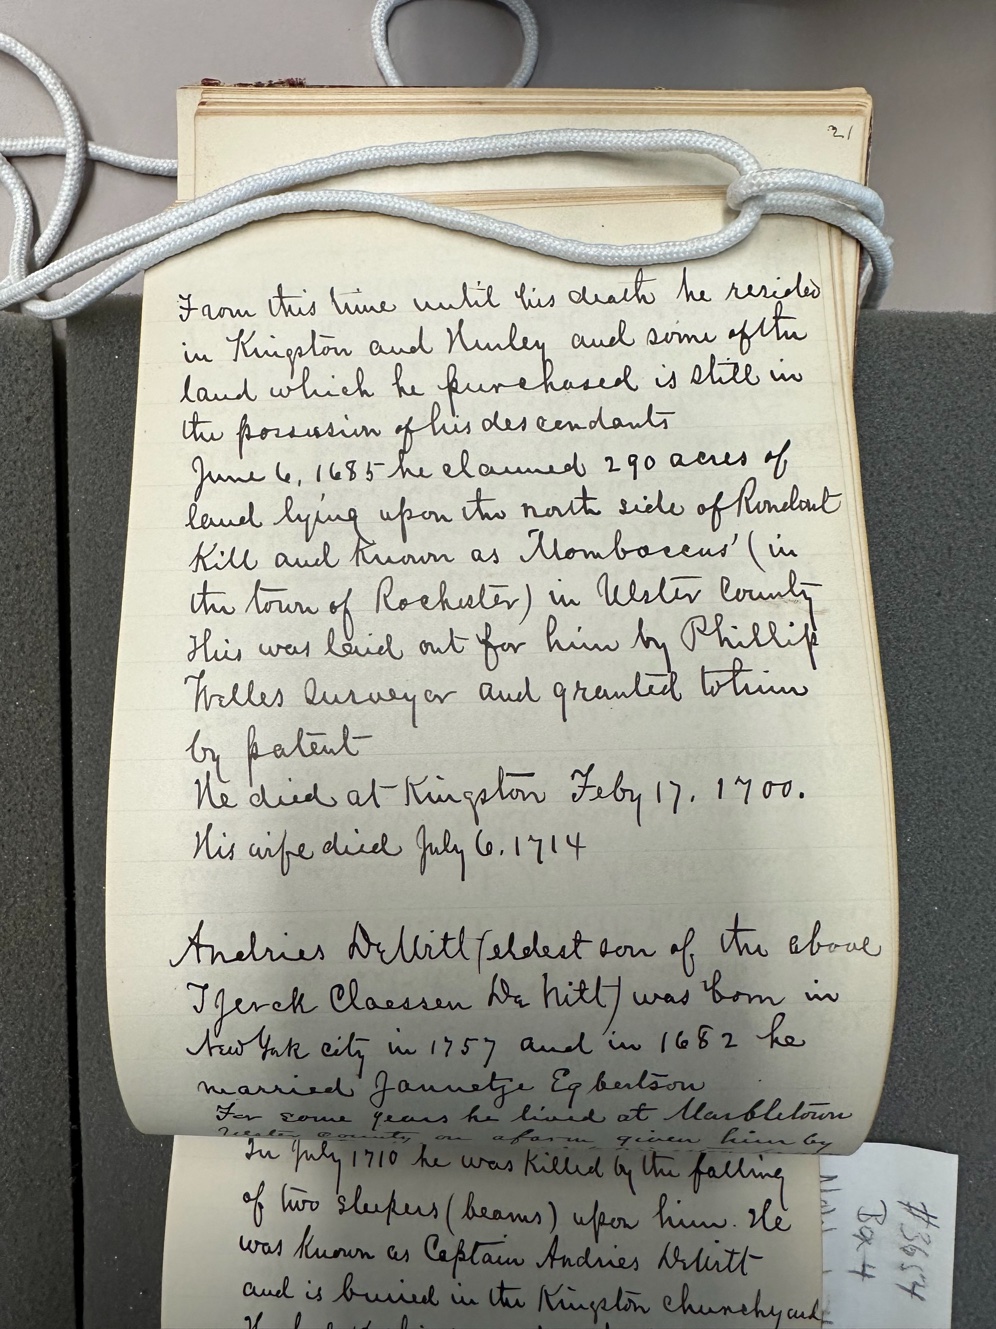 21
From this time until his death he resided
in Kingston and Hurley and some of the
land which he purchased is still in
the possession of his descendants
June 6, 1685 he claimed 290 acres of
land lying upon the north side of Rondout
Kill and known as Mombaccus' (in
the town of Rochester) in Ulster County
This was laid out for him by Phillip
Welles Surveyor and granted to him
by patent
He died at Kingston Feby 17. 1700.
His wife died July 6. 1714
Andries DeWitt (eldest son of the above
Tjerck Claessen De Witt) was born in
New York city in 1757 and in 1682 he
married Jannetje Egbertson
For some years he lived at Marbletown
Ulster County on a farm given him by
In July 1710 he was killed by the falling
of two sleepers (beams) upon him. He
was known as Captain Andries DeWitt
and is buried in the Kingston churchyard
#3654
Box 4